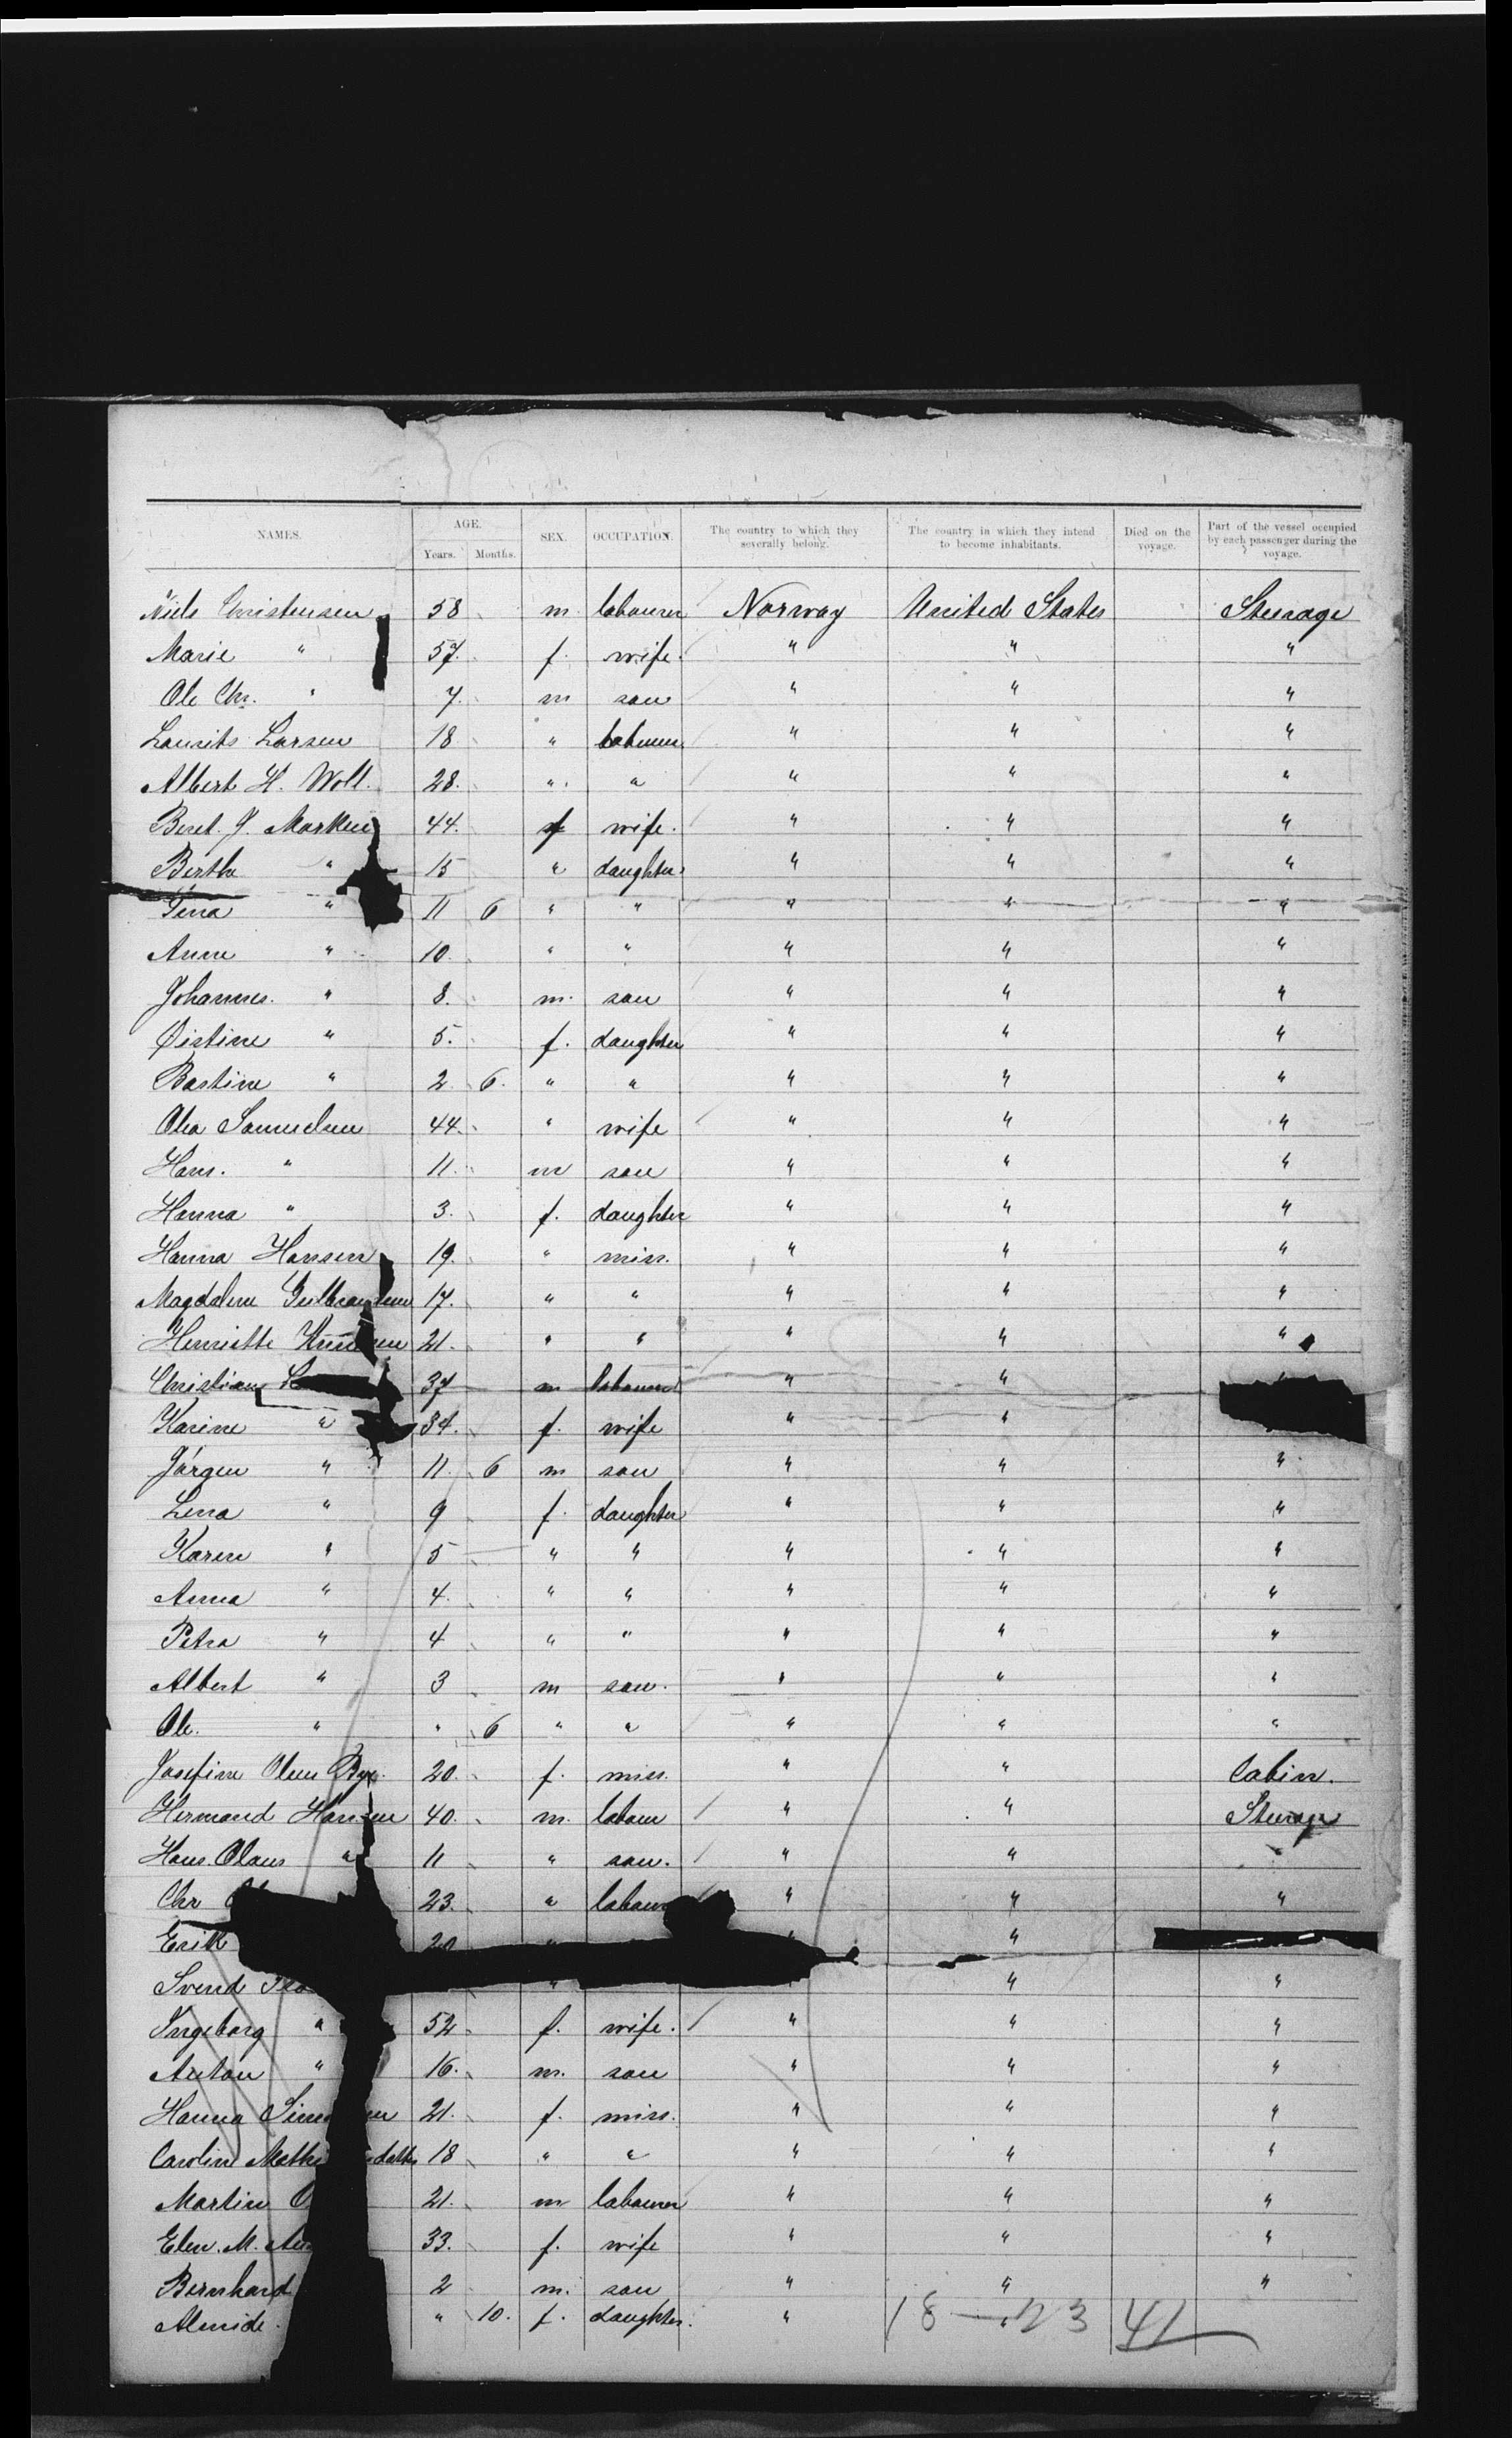 NAMES. AGE. Years. Months. SEX. OCCUPATION. The country to which they severally belong. The country in which they intend to become inhabitants. Died on the voyage. Part of the vessel occupied by each passenger during the voyage.
Niels Christensen 58 m. labourer Norway United States Steerage
Marie " 57. f. wife. " " "
Ole Chr. " 7. m son " " "
Laurits Larsen 18 " labourer " " "
Albert H. Woll. 28. " " " " "
Beret. J. Marken 44. f wife. " " "
Berthe " 15 " daughter " " "
Gina " 11 6 " " " " "
Anne " 10. " " " " "
Johannes. " 8. m. son " " "
Østine " 5. f. daughter " " "
Bastine " 2. 6. " " " " "
Olea Samuelsen 44. " wife " " "
Hans. " 11. m son " " "
Hanna " 3. f. daughter " " "
Hanna Hansen 19. " miss. " " "
Magdalene 17. " " " " "
Henriette 21. " " " " "
Christian 37 m labourer " "
Karine " 34. f. wife " "
Jørgen " 11. 6 m son " " "
Lena " 9 f. daughter " " "
Karen " 5 " " " " "
Anna " 4. " " " " "
Petra " 4 " " " " "
Albert " 3 m son. " " "
Ole. " " 6 " " " " "
Josefine Olsen Bye. 20. f. miss. " " Cabin.
Hermand Hansen 40. m. labour " " Steerage
Hans. Olaus " 11 " son. " " "
Chr 23. " labour " " "
Erik 20 " " "
Svend " " " "
Ingeborg " 52 f. wife. " " "
Anton " 16. m. son " " "
Hanna 21. f. miss. " " "
Caroline 18 " " " " "
Martin O 21. m labourer " " "
Elen. M. 33. f. wife " " "
Bernhard 2 m. son " " "
Almide. " 10. f. daughter. " "
18 — 23 41